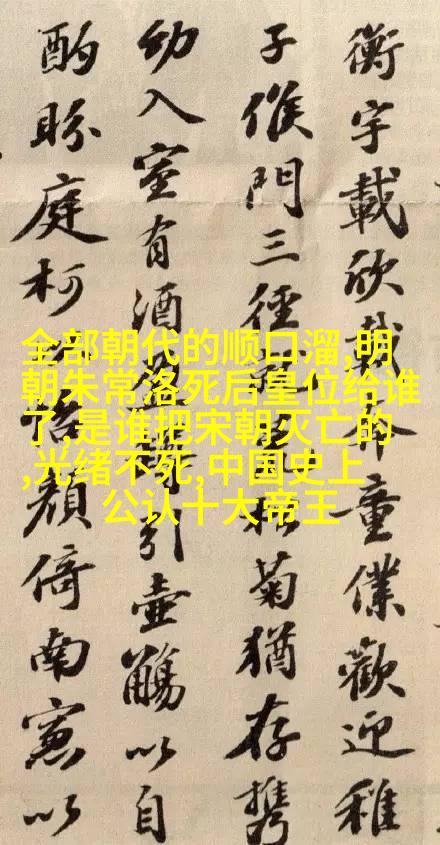 全部朝代的顺口溜,明
朝朱常洛死后皇位给谁
了,是谁把宋朝灭亡的
,光绪不死,中国史上
公认十大帝王
衡宇載欣載奔童僕歡迎稚
子候門三徑松菊猶存攜
幼入室有酒引壺觴以自
酌眄庭柯顏倚南窓以